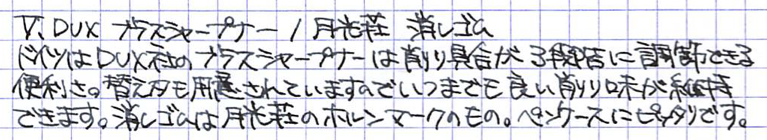 V. DUX ブラスシャープナー / 月光荘 消しゴム
ドイツはDUX社のブラスシャープナーは削り具合が3段階に調節できる
便利さ。替え刃も用意されていますのでいつまでも良い削り味が維持
できます。消しゴムは月光荘のホルンマークのもの。ペンケースにピッタリです。